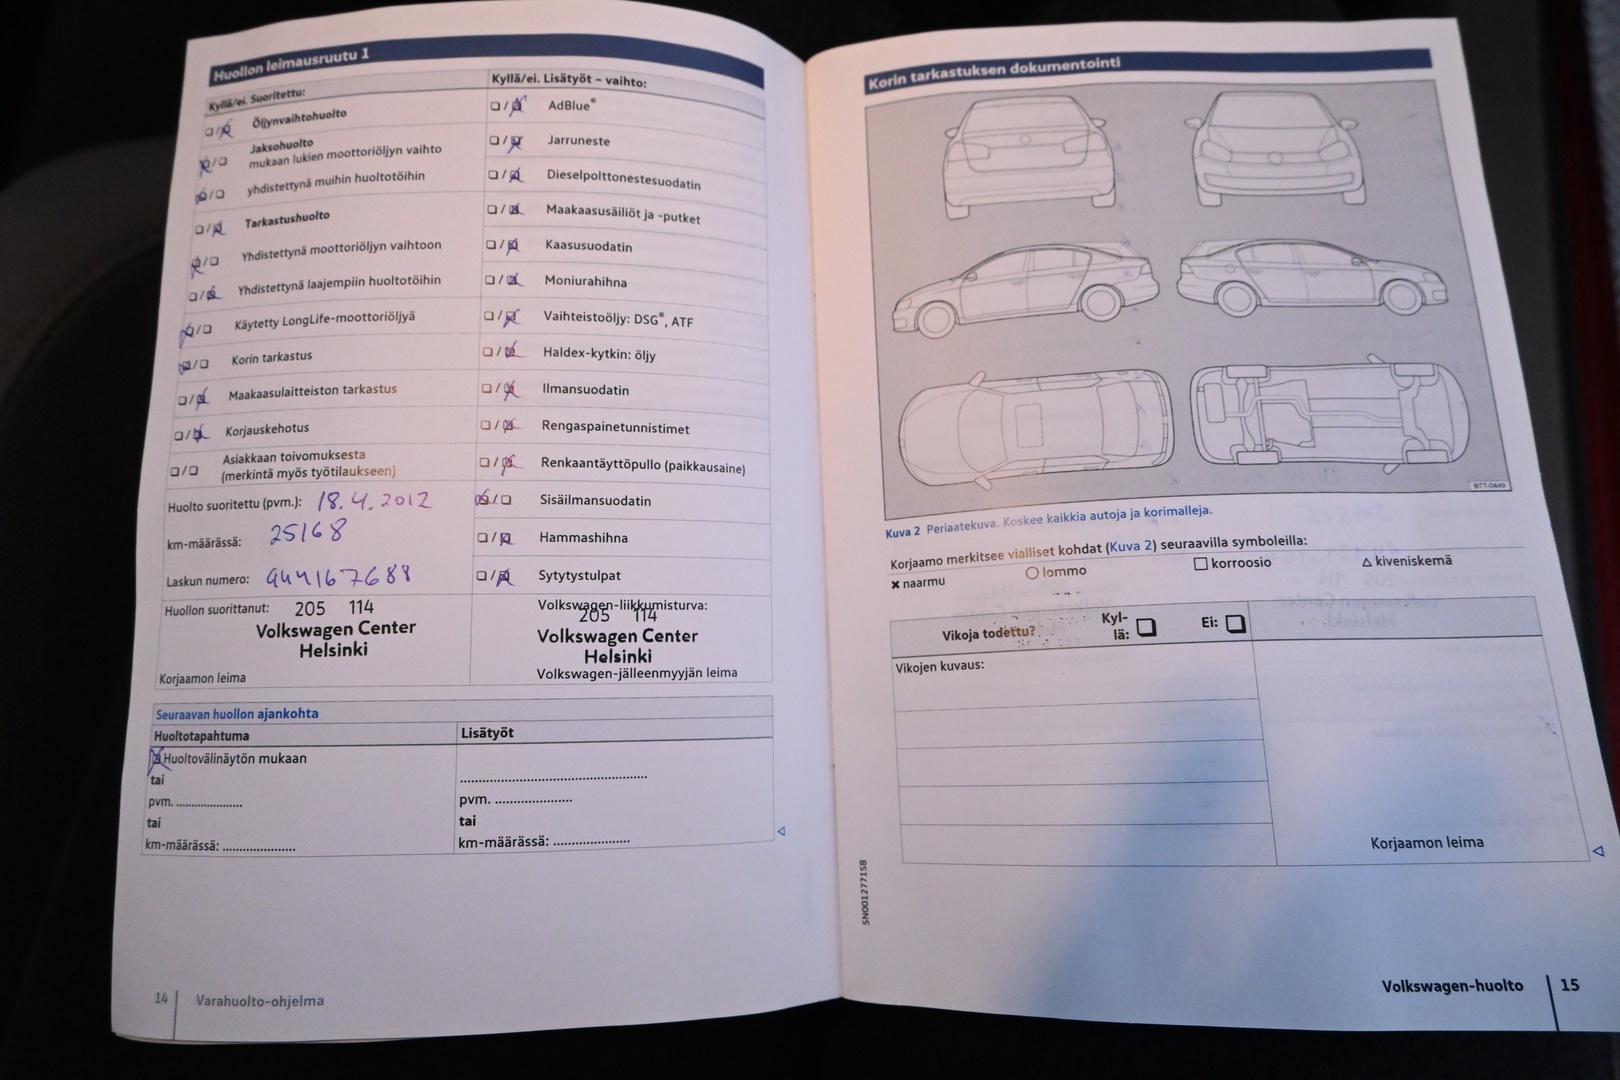 Huollon leimausruutu 1
Kyllä/ei. Suoritettu:
Öljynvaihtohuolto
Jaksohuolto
mukaan lukien moottoriöljyn vaihto
yhdistettynä muihin huoltotöihin
Tarkastushuolto
Yhdistettynä moottoriöljyn vaihtoon
Yhdistettynä laajempiin huoltotöihin
Käytetty LongLife-moottoriöljyä
Korin tarkastus
Maakaasulaitteiston tarkastus
Korjauskehotus
Asiakkaan toivomuksesta
(merkintä myös työtilaukseen)
Huolto suoritettu (pvm.): 18.4.2012
km-määrässä: 25168
Laskun numero: 944167688
Huollon suorittanut: 205 114
Volkswagen Center
Helsinki
Korjaamon leima
Kyllä/ei. Lisätyöt – vaihto:
AdBlue®
Jarruneste
Dieselpolttonestesuodatin
Maakaasusäiliöt ja -putket
Kaasusuodatin
Moniurahihna
Vaihteistoöljy: DSG®, ATF
Haldex-kytkin: öljy
Ilmansuodatin
Rengaspainetunnistimet
Renkaantäyttöpullo (paikkausaine)
Sisäilmansuodatin
Hammashihna
Sytytystulpat
Volkswagen-liikkumisturva:
205 114
Volkswagen Center
Helsinki
Volkswagen-jälleenmyyjän leima
Seuraavan huollon ajankohta
Huoltotapahtuma
Lisätyöt
Huoltovälinäytön mukaan
tai
pvm. ......................
tai
km-määrässä: ......................
......................................................
pvm. ......................
tai
km-määrässä: ......................
14 Varahuolto-ohjelma
Korin tarkastuksen dokumentointi
BTT-0449
Kuva 2 Periaatekuva. Koskee kaikkia autoja ja korimalleja.
Korjaamo merkitsee vialliset kohdat (Kuva 2) seuraavilla symboleilla:
× naarmu ○ lommo □ korroosio △ kiveniskemä
Vikoja todettu? Kyl-
lä: Ei:
Vikojen kuvaus:
Korjaamon leima
5N0012771SB
Volkswagen-huolto 15